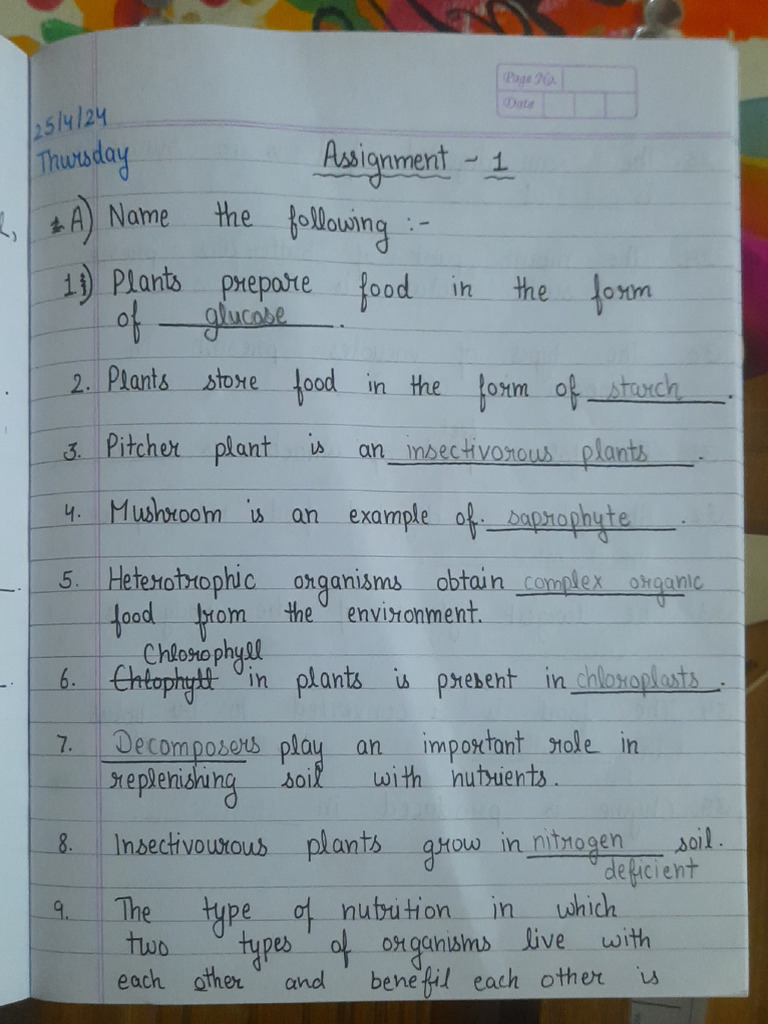 Page No.
Date
25/4/24
Thursday
Assignment - 1
A) Name the following :-
1) Plants prepare food in the form
of glucose.
2. Plants store food in the form of starch.
3. Pitcher plant is an insectivorous plants.
4. Mushroom is an example of. saprophyte.
5. Heterotrophic organisms obtain complex organic
food from the environment.
Chlorophyll
6. Chlophyll in plants is present in chloroplasts.
7. Decomposers play an important role in
replenishing soil with nutrients.
8. Insectivourous plants grow in nitrogen soil.
deficient
9. The type of nutrition in which
two types of organisms live with
each other and benefil each other is